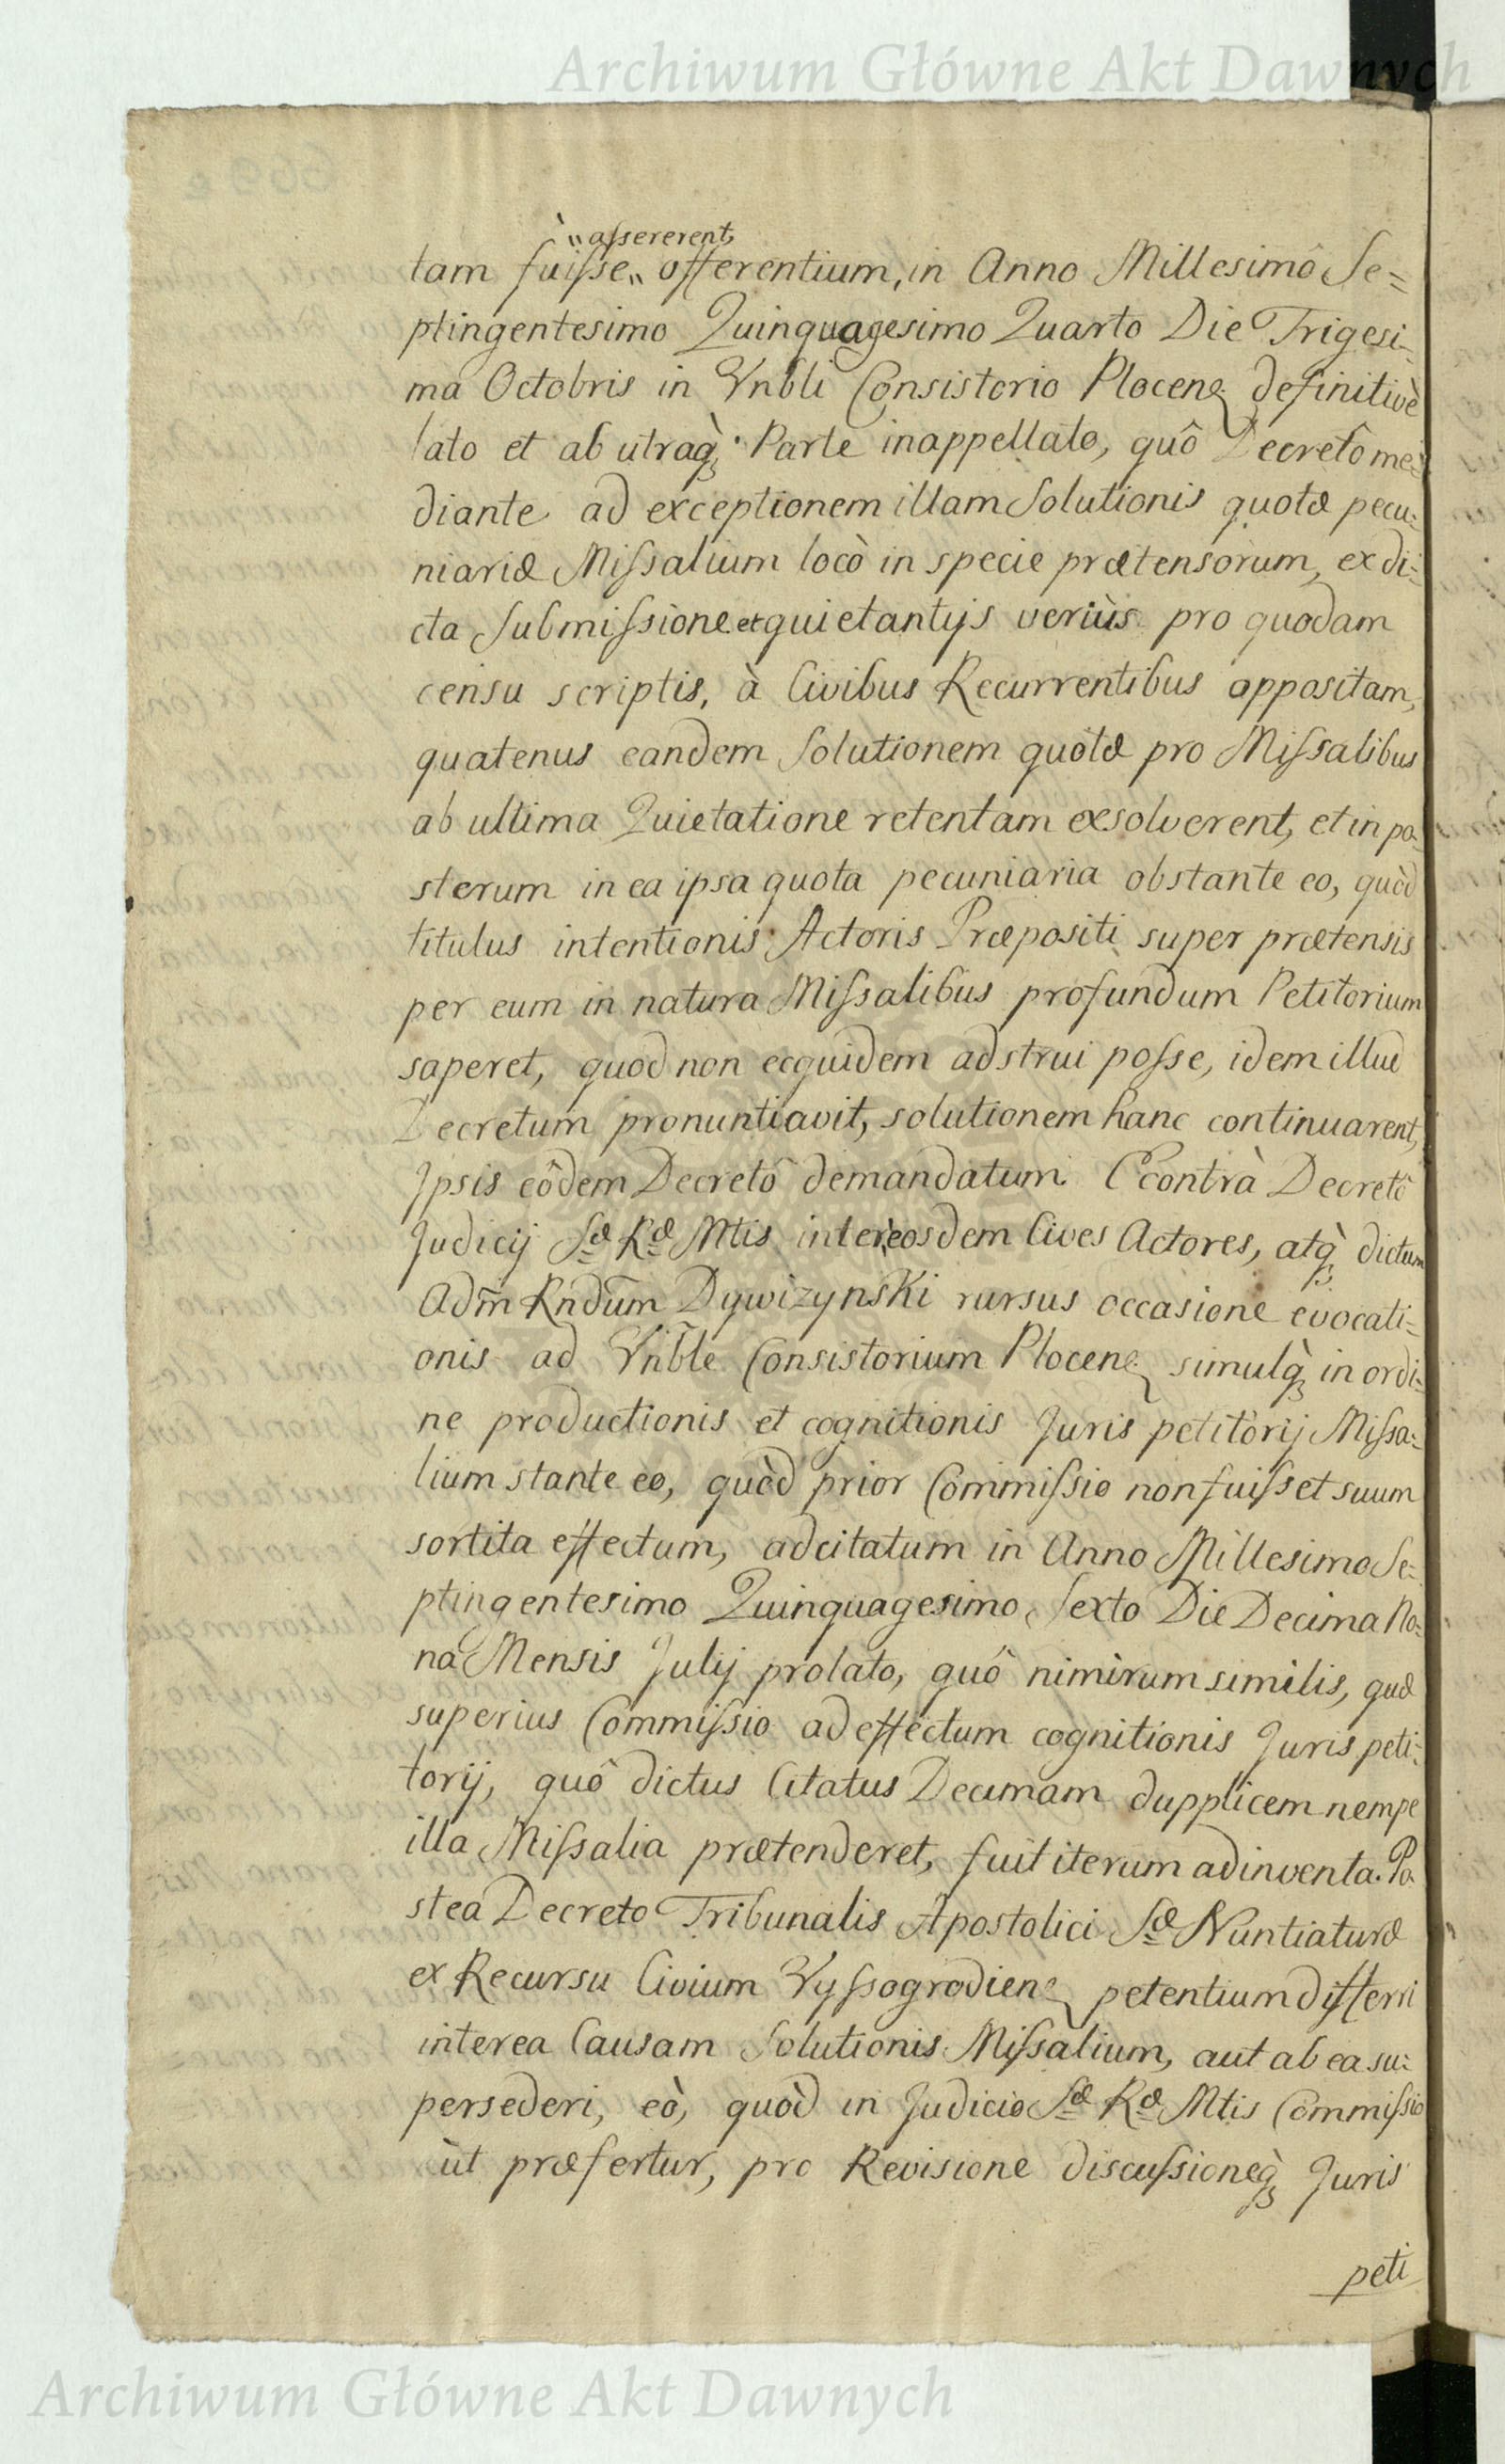 Archiwum Główne Akt Dawnych
"assererent
tam fuisse„ offerentium, in Anno Millesimô Se=
ptingentesimo Quinquagesimo Quarto Die Trigesi=
ma Octobris in Vnbli Consistorio Plocen definitivè
lato et ab utraq̀ Parte inappellato, quô Decretô me=
diante ad exceptionem illam Solutionis quotæ pecu=
niariæ Missalium locò in specie prætensorum, ex di=
cta Submissione et quietantijs veriùs pro quodam
censu scriptis, à Civibus Recurrentibus appositam,
quatenus eandem Solutionem quotæ pro Missalibus
ab ultima Quietatione retentam exsolverent, et in po=
sterum in ea ipsa quota pecuniaria obstante eo, quòd
titulus intentionis Actoris Præpositi super prætensis
per eum in natura Missalibus profundum Petitorium
saperet, quod non ecquidem adstrui posse, idem illud
Decretum pronuntiavit, solutionem hanc continuarent,
Ipsis eôdem Decretô demandatum. Econtrà Decretô
Judicij Sæ Ræ Mtis inter eosdem Cives Actores, atq̀ dictum
Adm̃ Rndum̃ Dywizynski rursus occasione evocati=
onis ad Vnble Consistorium Plocen simulq̀ in ordi=
ne productionis et cognitionis Juris petitorij Missa=
lium stante eo, quòd prior Commissio non fuisset suum
sortita effectum, adcitatum in Anno Millesimo Se=
ptingentesimo Quinquagesimo Sexto Die Decima No=
na Mensis Julij prolato, quô nimirum similis, quæ
superius Commissio ad effectum cognitionis Juris peti=
torij, quô dictus Citatus Decimam dupplicem nempe
illa Missalia prætenderet, fuit iterum adinventa. Po=
stea Decreto Tribunalis Apostolici Sæ Nuntiaturæ
ex Recursu Civium Vyssogrodien petentium differri
interea Causam Solutionis Missalium, aut ab ea su=
persederi, eò, quòd in Judicio Sæ Ræ Mtis Commissio
ùt præfertur, pro Revisione discussioneq̀ Juris
peti
Archiwum Główne Akt Dawnych